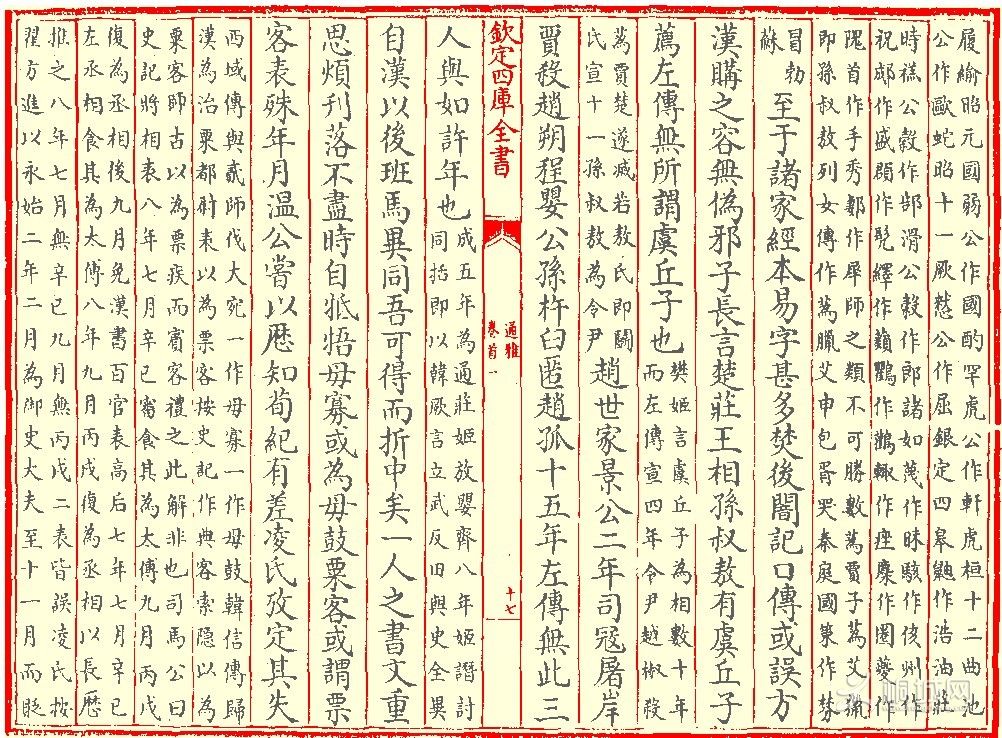 履緰昭元國弱公作國酌罕虎公作軒虎桓十二曲池
公作歐蛇昭十一厥憖公作屈銀定四皋鼬公作浩油莊
時禚公穀作郜滑公穀作郎諸如蔑作昧駭作侅州作
祝郕作盛頵作髡繹作蘱鸜作鸛輒作痤麇作圈夔作
隗首作手秀鄟作犀師之類不可勝數蒍賈子蒍艾獵
即孫叔敖列女傳作蒍臘艾申包胥哭秦庭國策作棼
冒勃
蘇
至于諸家經本易字甚多焚後闇記口傳或誤方
漢購之容無偽邪子長言楚莊王相孫叔敖有虞丘子
薦左傳無所謂虞丘子也
樊姬言虞丘子為相數十年
而左傳宣四年令尹越椒殺
蒍賈楚遂滅若敖氏即鬬
氏宣十一孫叔敖為令尹
趙世家景公二年司寇屠岸
賈殺趙朔程嬰公孫杵臼匿趙孤十五年左傳無此三
欽定四庫全書
通雅
卷首一
十七
人與如許年也
成五年為通莊姬放嬰齊八年姬譖討
同括即以韓厥言立武反田與史全異
自漢以後班馬異同吾可得而折中矣一人之書文重
思煩刊落不盡時自牴牾毋寡或為毋鼓粟客或謂票
客表殊年月溫公嘗以厯知荀紀有差凌氏攷定其失
西域傳與貳師伐大宛一作毋寡一作毋鼓韓信傳歸
漢為治粟都尉表以為票客按史記作典客索隱以為
粟客師古以為票疾而賓客禮之此解非也司馬公曰
史記將相表八年七月辛巳審食其為太傅九月丙戌
復為丞相後九月免漢書百官表高后七年七月辛巳
左丞相食其為太傅八年九月丙戌復為丞相以長厯
推之八年七月無辛巳九月無丙戌二表皆誤凌氏按
翟方進以永始二年二月為御史大夫至十一月而貶